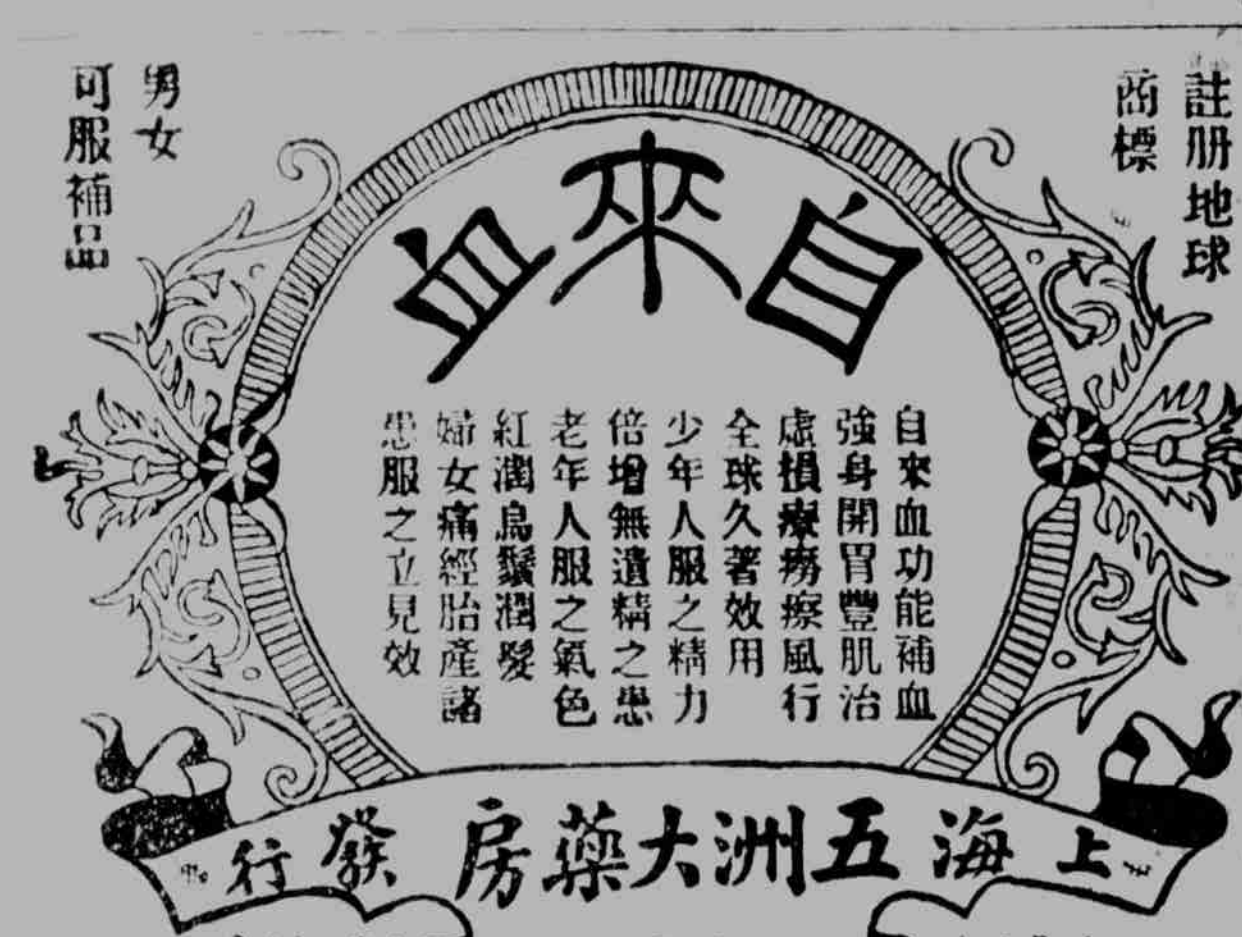 註册地球
商標
自來血
男女
可服補品
自來血功能補血
強身開胃豐肌治
虛損療癆瘵風行
全球久著效用
少年人服之精力
倍增無遺精之患
老年人服之氣色
紅潤烏鬚潤髮
婦女痛經胎產諸
患服之立見效
上海五洲大藥房發行